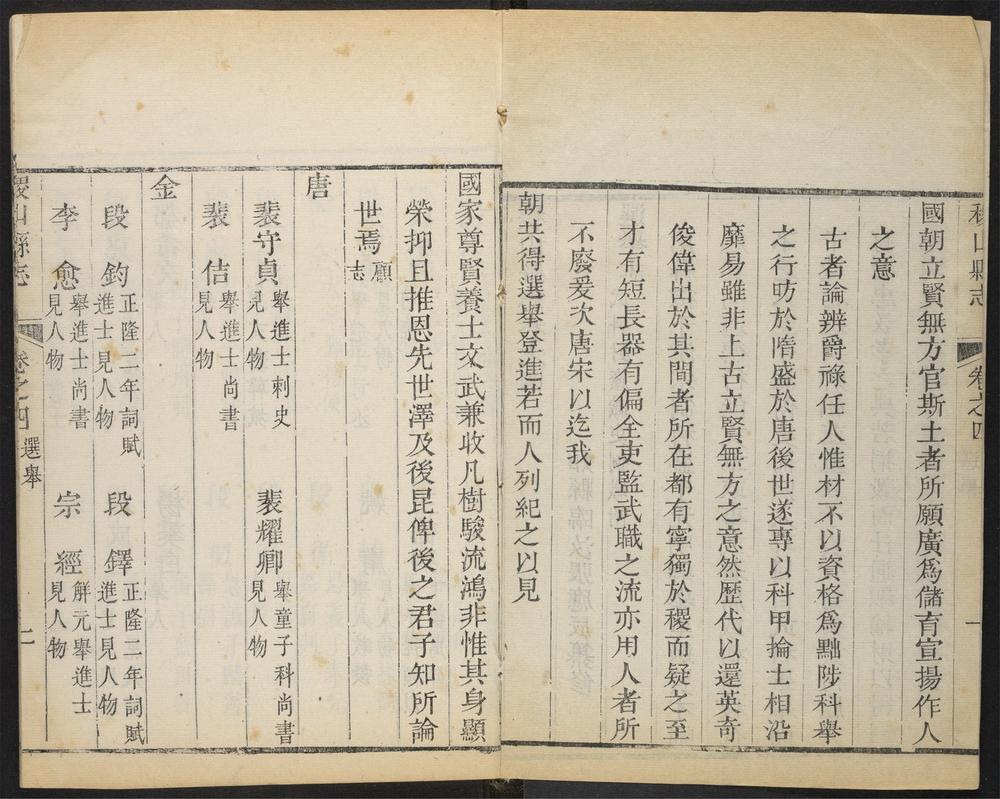 稷山縣志
卷之四
一
國朝立賢無方官斯土者所願廣爲儲育宣揚作人
之意
古者論辨爵祿任人惟材不以資格爲黜陟科舉
之行昉於隋盛於唐後世遂專以科甲掄士相沿
靡易雖非上古立賢無方之意然歷代以還英奇
俊偉出於其間者所在都有寧獨於稷而疑之至
才有短長器有偏全吏監武職之流亦用人者所
不廢爰次唐宋以迄我
朝共得選舉登進若而人列紀之以見
國家尊賢養士文武兼收凡樹駿流鴻非惟其身顯
榮抑且推恩先世澤及後昆俾後之君子知所論
世焉顧志
唐
裴守貞舉進士刺史見人物 裴耀卿舉童子科尚書見人物
裴佶舉進士尚書見人物
金
段鈞正隆二年詞賦進士見人物 段鐸正隆二年詞賦進士見人物
李愈舉進士尚書見人物 宗經解元舉進士見人物
稷山縣志 卷之四 選舉